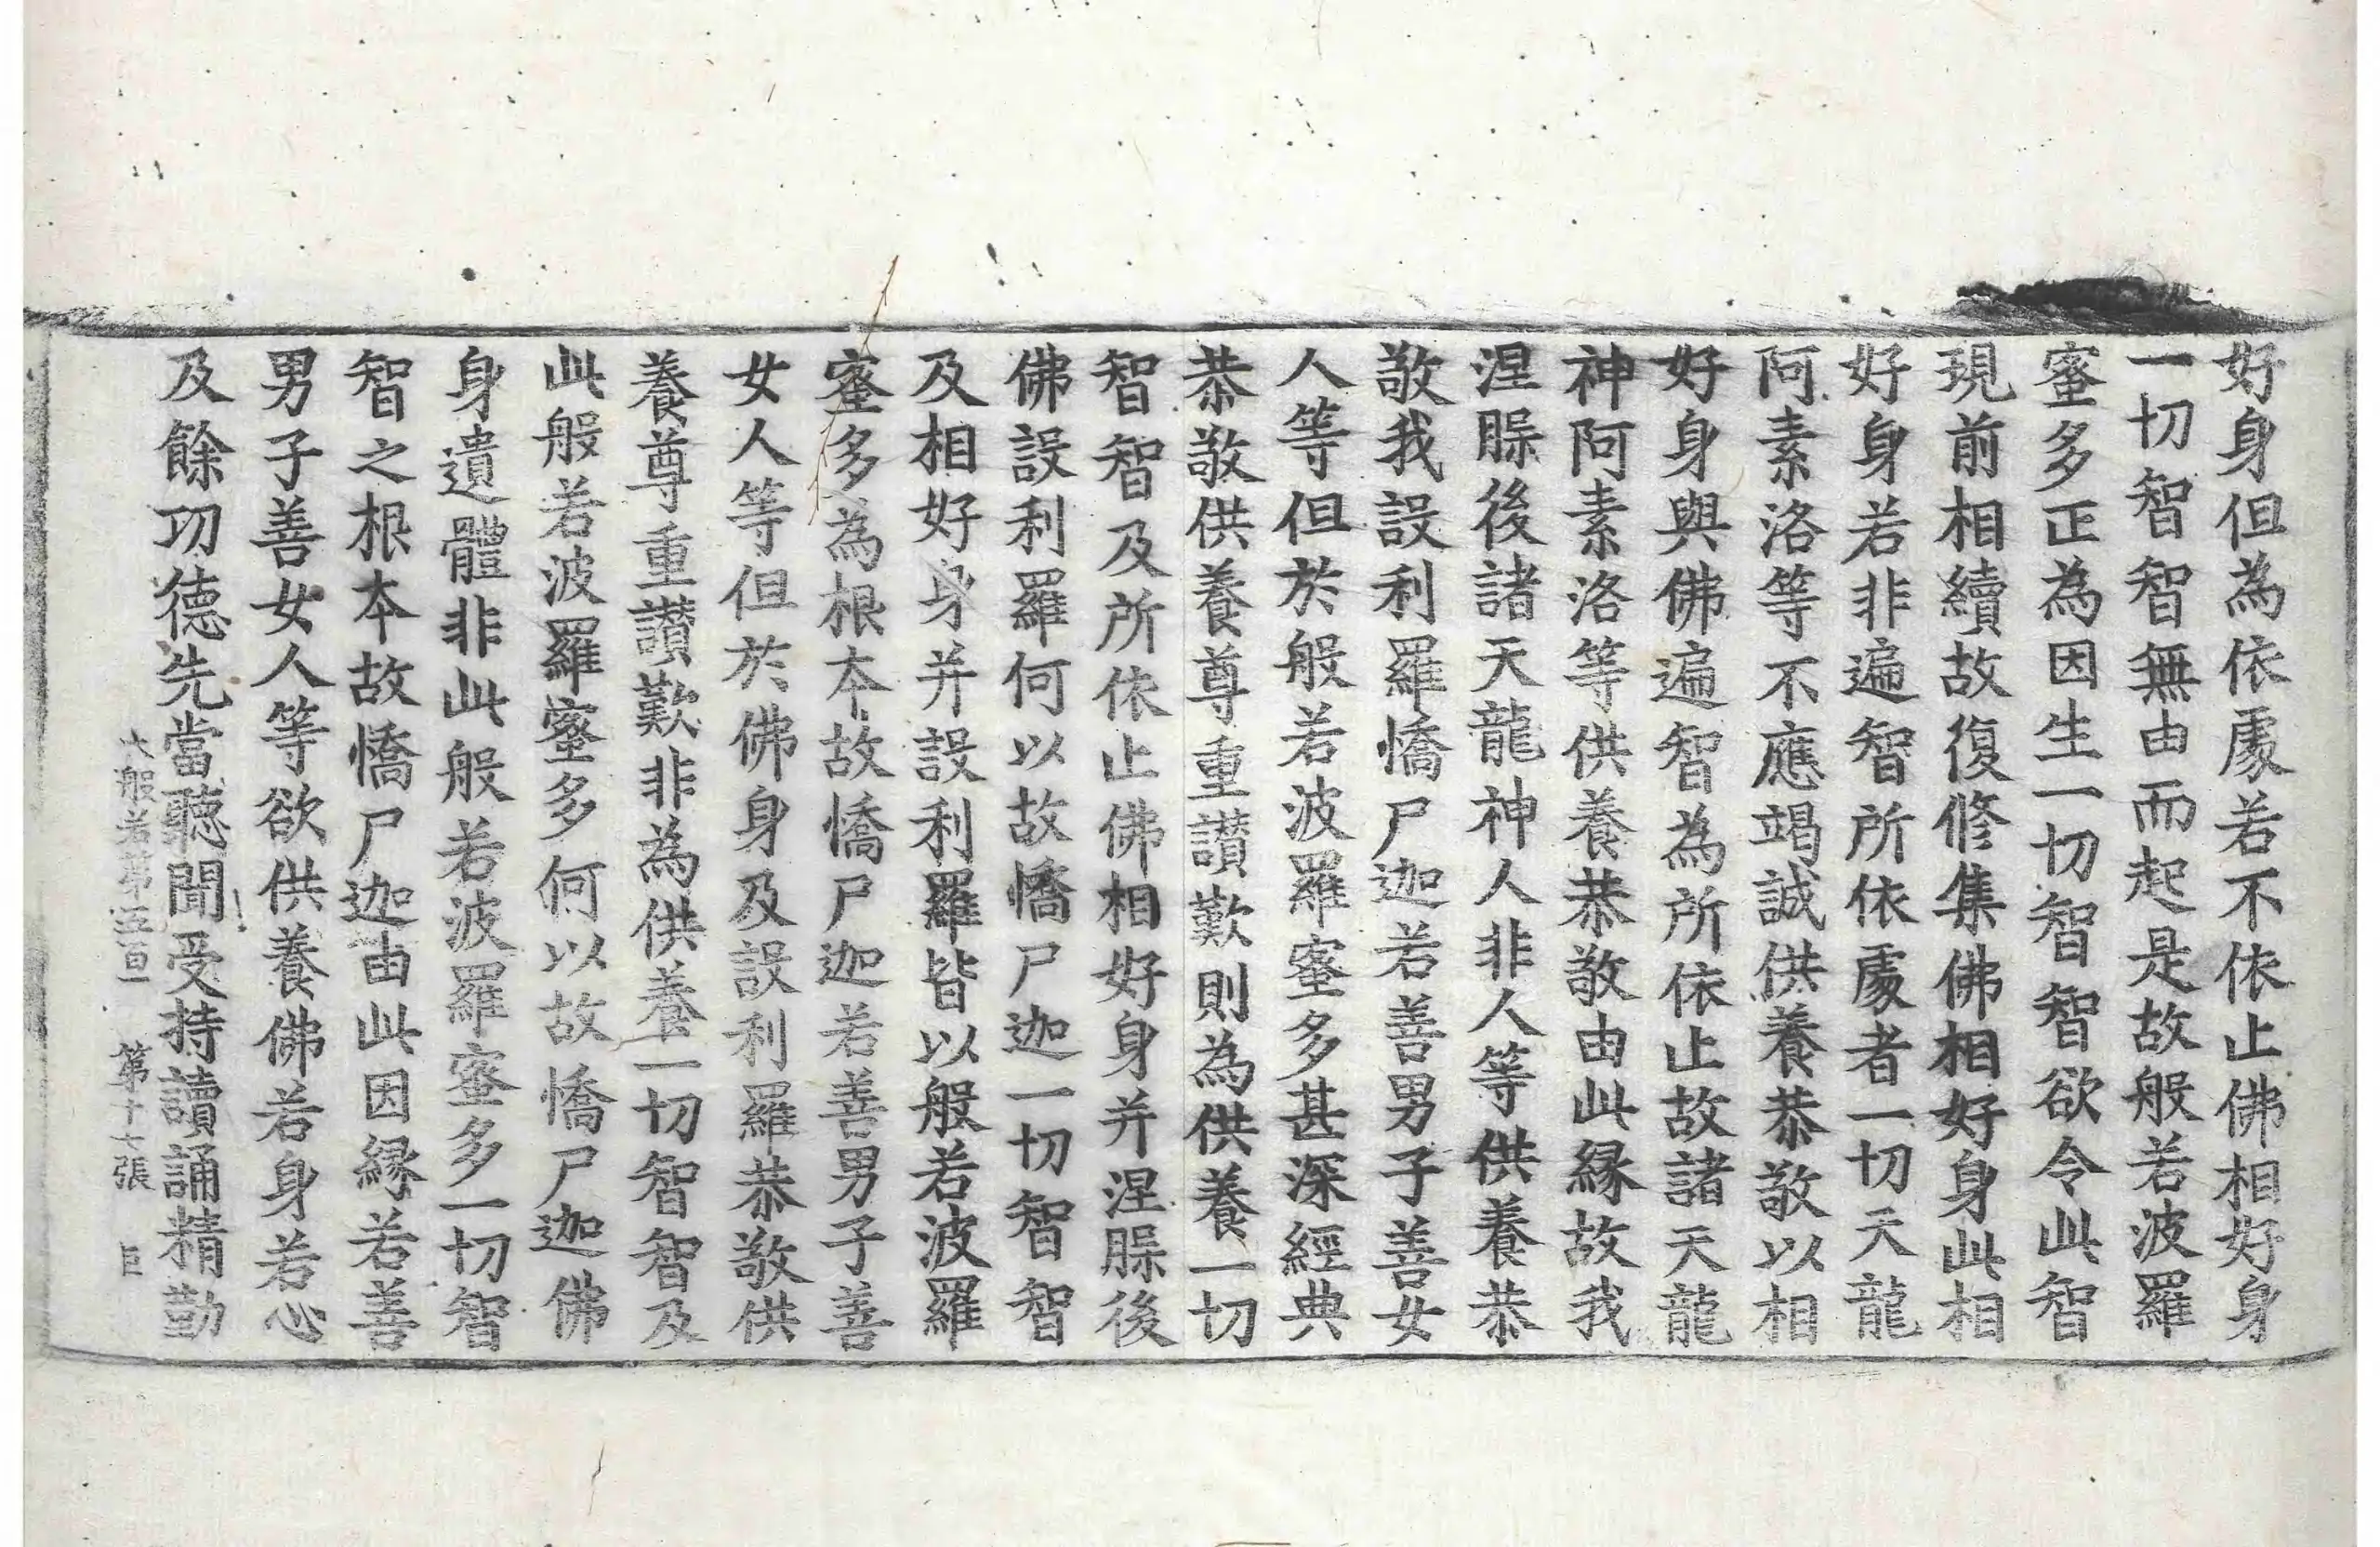 好身但為依處若不依止佛相好身
一切智智無由而起是故般若波羅
蜜多正為因生一切智智欲令此智
現前相續故復修集佛相好身此相
好身若非遍智所依處者一切天龍
阿素洛等不應竭誠供養恭敬以相
好身與佛遍智為所依止故諸天龍
神阿素洛等供養恭敬由此緣故我
涅槃後諸天龍神人非人等供養恭
敬我設利羅憍尸迦若善男子善女
人等但於般若波羅蜜多甚深經典
恭敬供養尊重讃歎則為供養一切
智智及所依止佛相好身并涅槃後
佛設利羅何以故憍尸迦一切智智
及相好身并設利羅皆以般若波羅
蜜多為根本故憍尸迦若善男子善
女人等但於佛身及設利羅恭敬供
養尊重讃歎非為供養一切智智及
此般若波羅蜜多何以故憍尸迦佛
身遺體非此般若波羅蜜多一切智
智之根本故憍尸迦由此因緣若善
男子善女人等欲供養佛若身若心
及餘功德先當聽聞受持讀誦精勤
大般若第五百 第十七張 巨